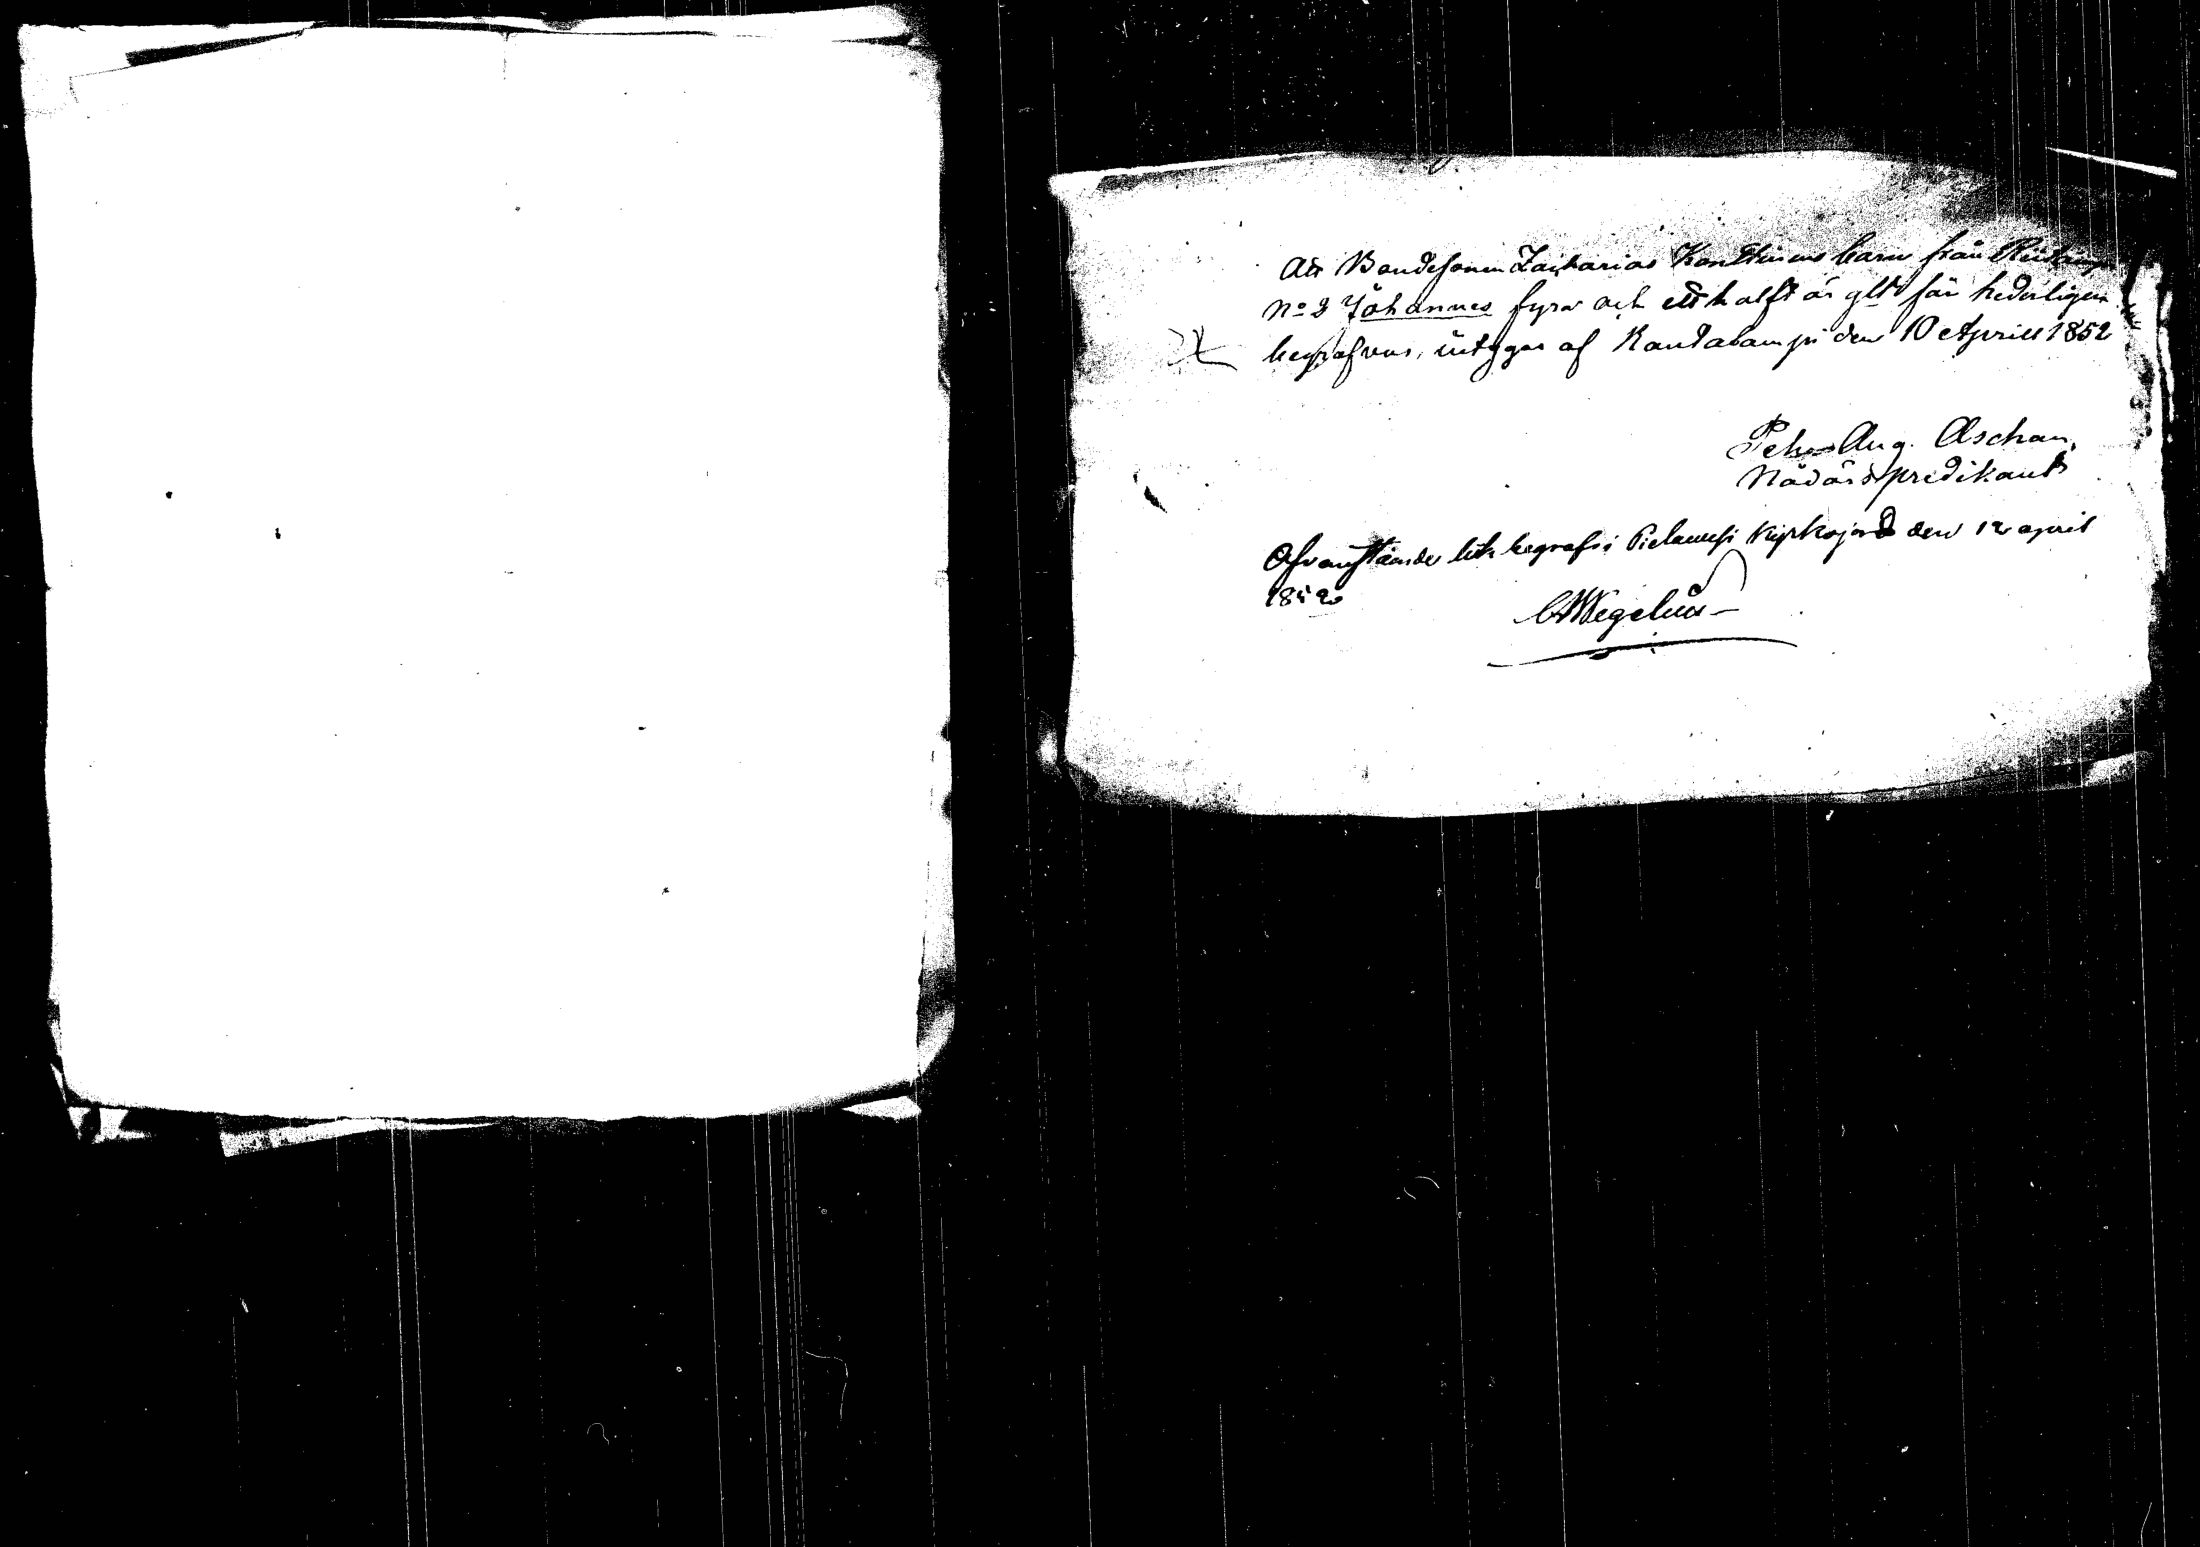 Att Bondesonen Zackarias Konttinens barn från
No 2 Johannes fyra och ett halft år glt får hederligen
begrafvas, intygar af Rautalampi den 10 Aprill 1852
Pehr Aug. Aschan,
Nådårspredikant
Ofvanstående lik begrafvi Pielavesi Kyrkogård den 12 april
1852
Wegelius